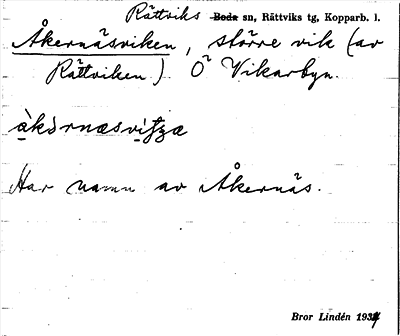 Rättviks Boda sn, Rättviks tg, Kopparb. l.
Åkernäsviken, större vik (av
Rättviken). Ö Vikarbyn.
Har namn av Åkernäs.
Bror Lindén 1934